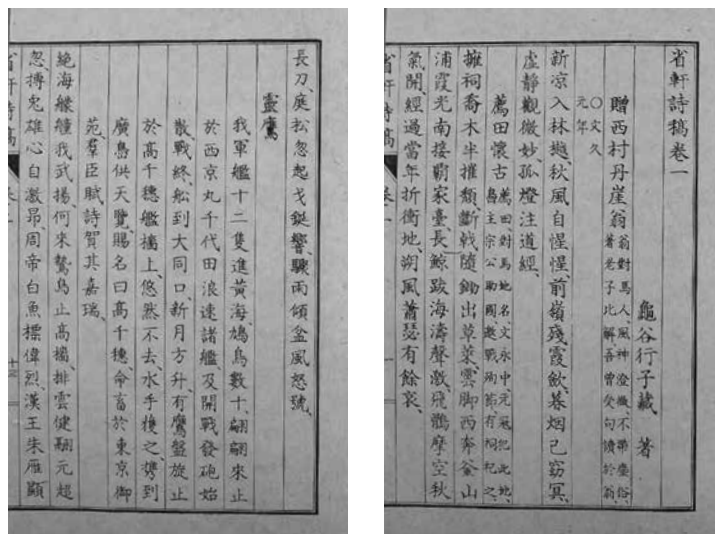 省軒詩稿卷一
龜谷行子藏 著
贈西村丹崖翁
翁對馬人、風神澄徹、不帶塵俗、
著老子北解、吾曾受句讀於翁、
○文久
元年
新凉入林樾、秋風自惺惺、前嶺殘霞歛、暮烟已窈冥、
虛靜觀微妙、孤燈注道經、
薦田懷古
薦田、對馬地名、文永中元寇犯此地、
島主宗公助國邀戰殉節、有祠祀之、
擁祠喬木半摧頽、斷戟隨鋤出草萊、雲脚西奔釜山
浦、霞光南接霸家臺、長鯨跋海濤聲激、飛鶻摩空秋
氣開、經過當年折衝地、朔風蕭瑟有餘哀、
省軒詩稿 卷一 一
長刀、庭松忽起戈鋋響、驟雨傾盆風怒號、
靈鷹
我軍艦十二隻進黃海、鳩鳥數十、翩翩來止
於西京丸千代田浪速諸艦、及開戰發砲始
散、戰終、船到大同口、新月方升、有鷹盤旋止
於高千穗艦檣上、悠然不去、水手捜之、携到
廣島供天覽、賜名曰高千穗、命畜於東京御
苑、羣臣賦詩賀其嘉瑞、
絕海艨艟我武揚、何來鷙鳥止高檣、排雲健翮元超
忽、搏兎雄心自激昂、周帝白魚標偉烈、漢王朱雁顯
省軒詩稿 卷一 十三